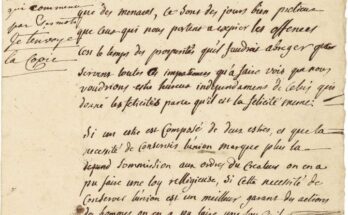 qui commence
par ces mots
Je t'envoye
la Copie
que des menaces, ce sont des jours bien precieux
que ceux qui nous portent a expier les offenses
c'est le temps des prosperités qu'il faudroit abreger
servent toutes impatiences qu'a faire voir que nous
voudrions estre heureux independamment de celuy qui
donne les felicités parce qu'il est la felicité meme.
Si un estre est Composé de deux estres, et que la
necessité de Conserver l'union marque plus la
soumission aux ordres du Createur on en a
pu faire une loy religieuse, Si cette necessité de
Conserver l'union est un meilleur garant des actions
hommes on en a pu faire une